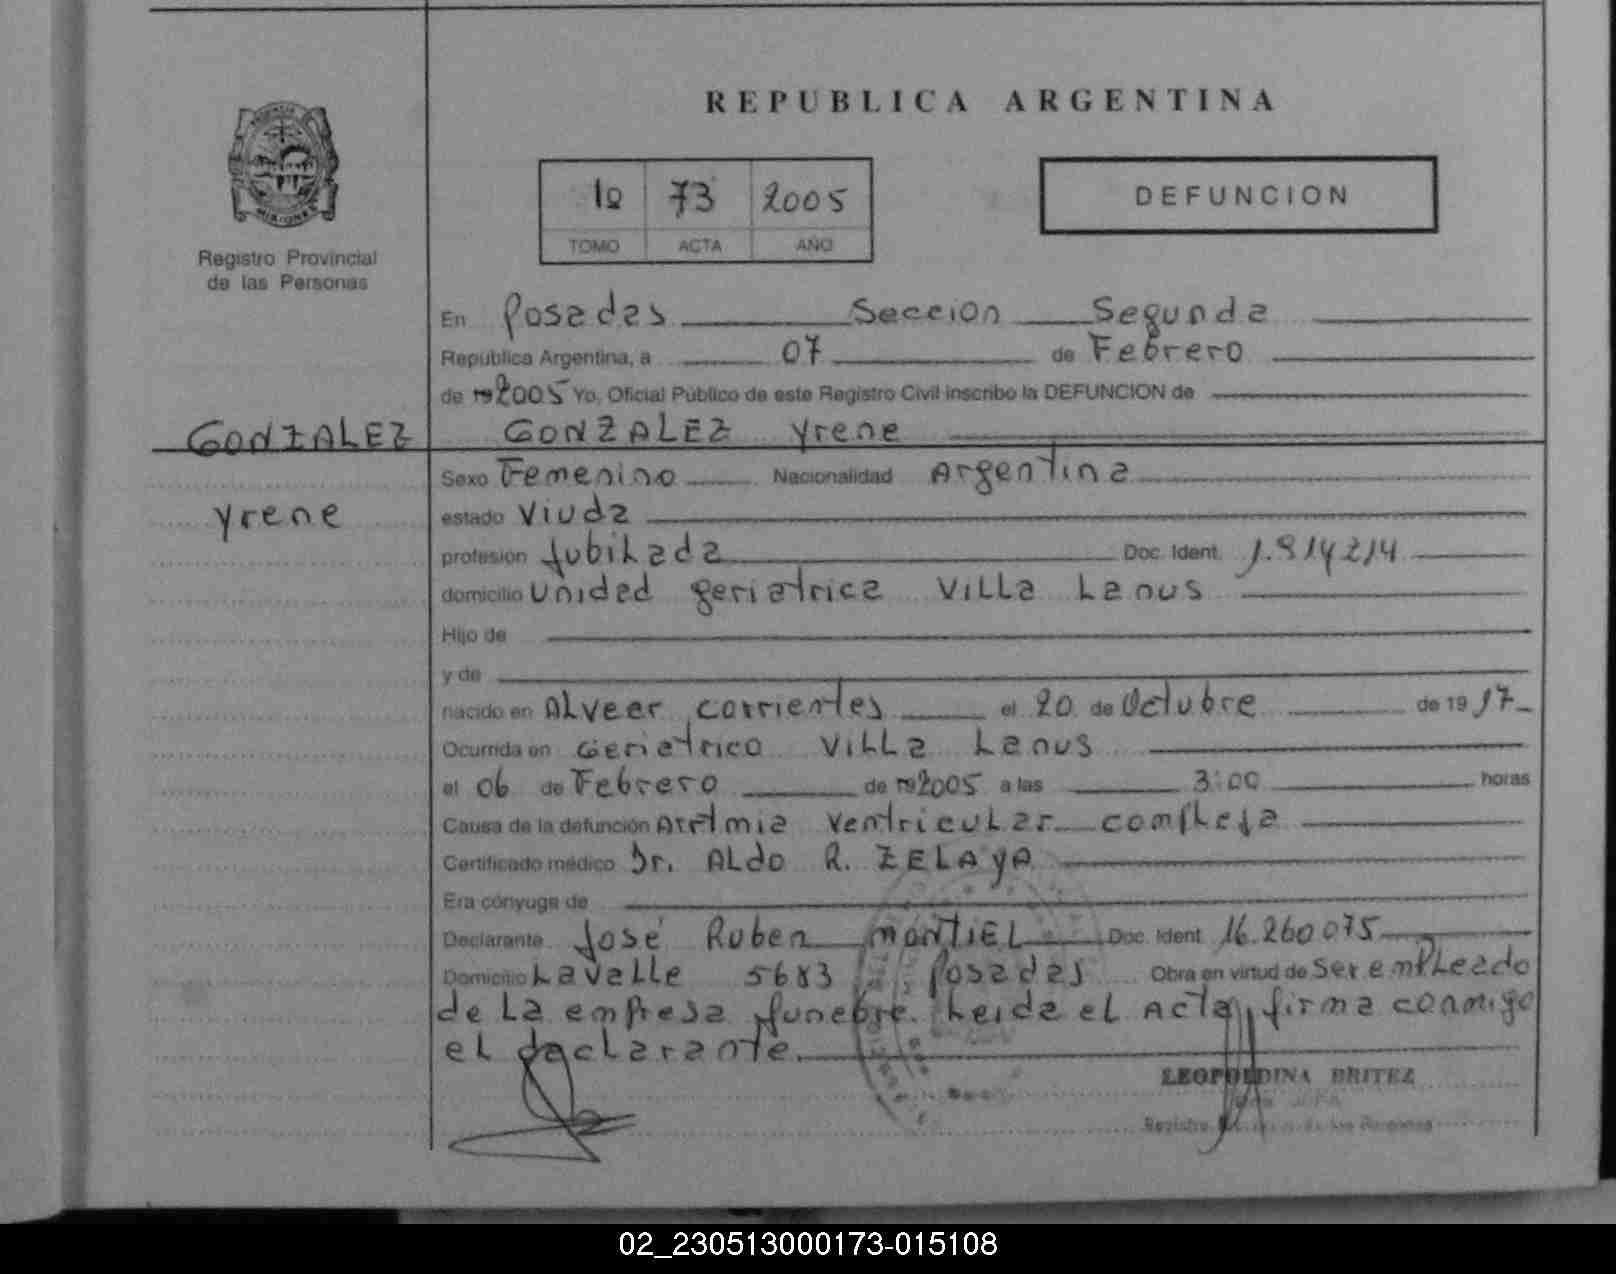 REPUBLICA ARGENTINA
1º 73 2005
TOMO ACTA AÑO
DEFUNCION
MISIONES
Registro Provincial
de las Personas
En Posadas Seccion Segunda
República Argentina, a 07 de Febrero
de 19 2005 Yo, Oficial Público de este Registro Civil inscribo la DEFUNCION de
GONZALEZ GONZALEZ Yrene
Sexo Femenino Nacionalidad Argentina
Yrene estado Viuda
profesión Jubilada Doc. Ident. 1.814214
domicilio Unidad geriatrica Villa Lanus
Hijo de
y de
nacido en Alvear, corrientes el 20 de Octubre de 19 17
Ocurrida en Geriatrico Villa Lanus
el 06 de Febrero de 19 2005 a las 3:00 horas
Causa de la defunción Arritmia Ventricular compleja
Certificado médico Dr. Aldo R. ZELAYA
Era cónyuge de
Declarante José Ruben MONTIEL Doc. Ident. 16.260075
Domicilio Lavalle 5683 Posadas Obra en virtud de Ser empleado
de la empresa funebre. Leida el Acta, firma conmigo
el declarante.
LEOPOLDINA BRITEZ
Registro de las Personas
02_230513000173-015108